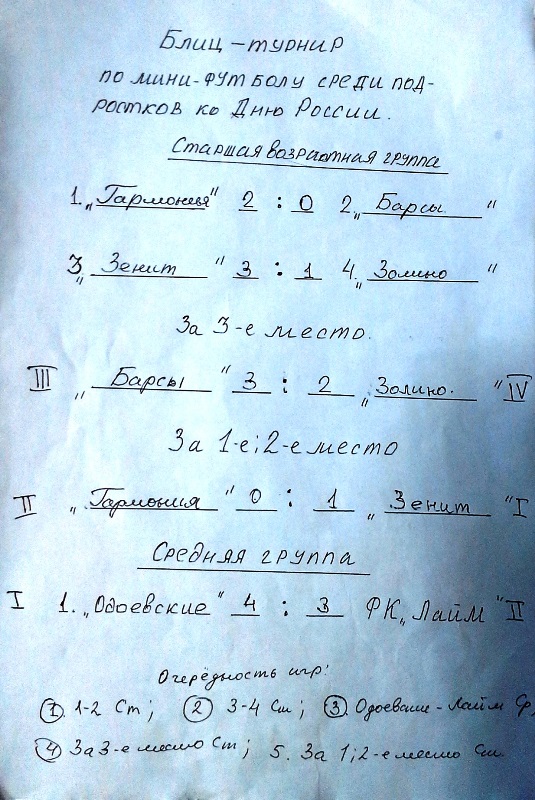 Блиц-турнир
по мини-футболу среди под-
ростков ко Дню России.
Старшая возрастная группа
1. „Гармония“ 2 : 0 2. „Барсы“
3. „Зенит“ 3 : 1 4. „Золино“
За 3-е место.
III „Барсы“ 3 : 2 „Золино.“ IV
За 1-е; 2-е место
II „Гармония“ 0 : 1 „Зенит“ I
Средняя группа
I 1. „Одоевские“ 4 : 3 ФК „Лайм“ II
Очерёдность игр:
1. 1-2 Ст; 2 3-4 Ст; 3. Одоевские - Лайм Ср,
4 За 3-е место Ст; 5. За 1; 2-е место Ст.